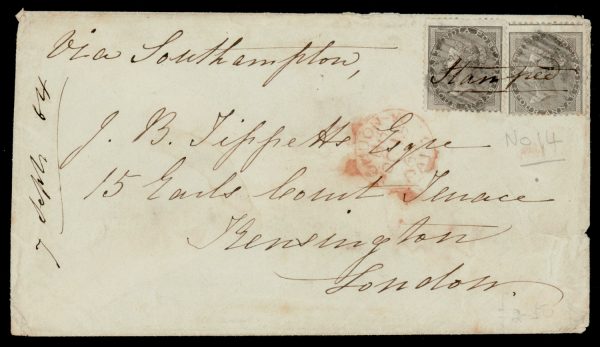 Via Southampton,
Stamped
7 Sept 64
J. B. Tippetts Esqre
15 Earls Court Terrace
Kensington
London.
No 14